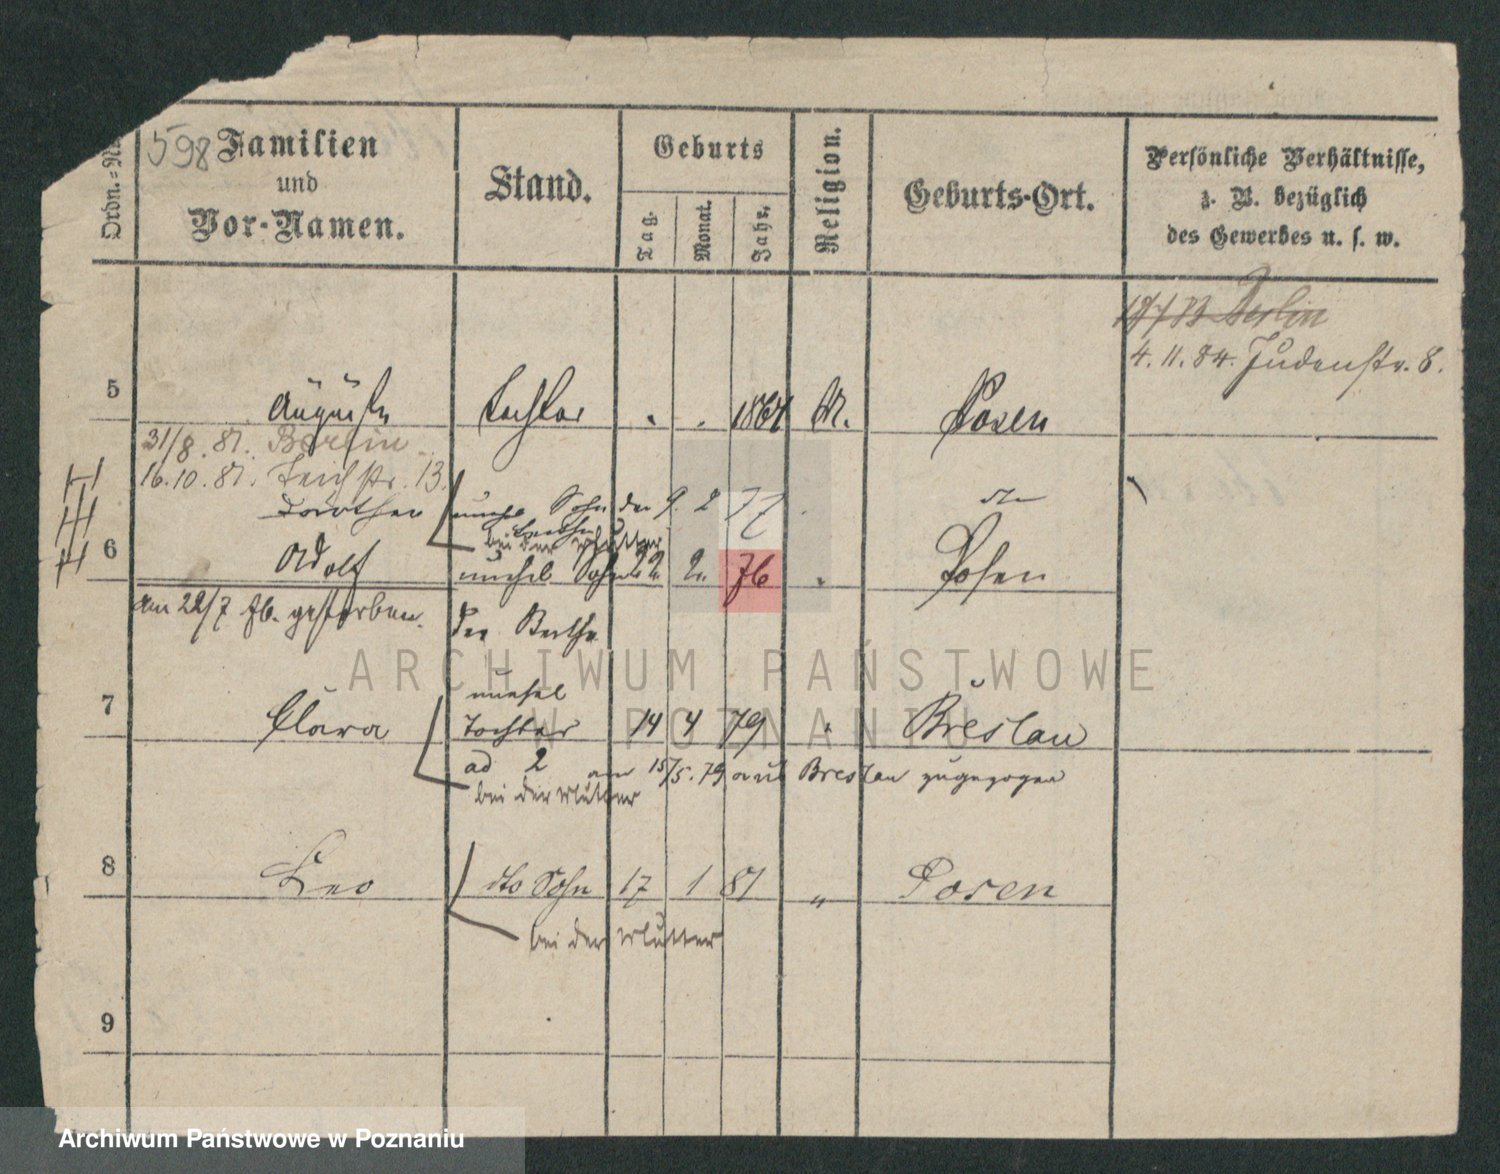 Ordn.=Nr
598 Familien
und
Vor-Namen.
Stand.
Geburts
Tag.
Monat.
Jahr.
Religion.
Geburts-Ort.
Persönliche Verhältnisse,
z. B. bezüglich
des Gewerbes u. s. w.
Berlin
4. 11. 84. Judenstr. 8.
5 Auguste Tochter 1864 M. Posen
31/8. 81. Berlin
16. 10. 81. Teichstr. 13.
unehl Sohn der 9. 2 77
bei der Mutter
6 Adolf unehel Sohn 22. 2. 76 " Posen
am 22/7 76. gestorben.
der Berthe
unehel
7 Clara Tochter 14 4 79 " Breslau
ad 2 am 15/5. 79 aus Breslau zugezogen
bei der Mutter
8 Leo dto Sohn 17 1 81 " Posen
bei der Mutter
9
ARCHIWUM PAŃSTWOWE
W POZNANIU
Archiwum Państwowe w Poznaniu